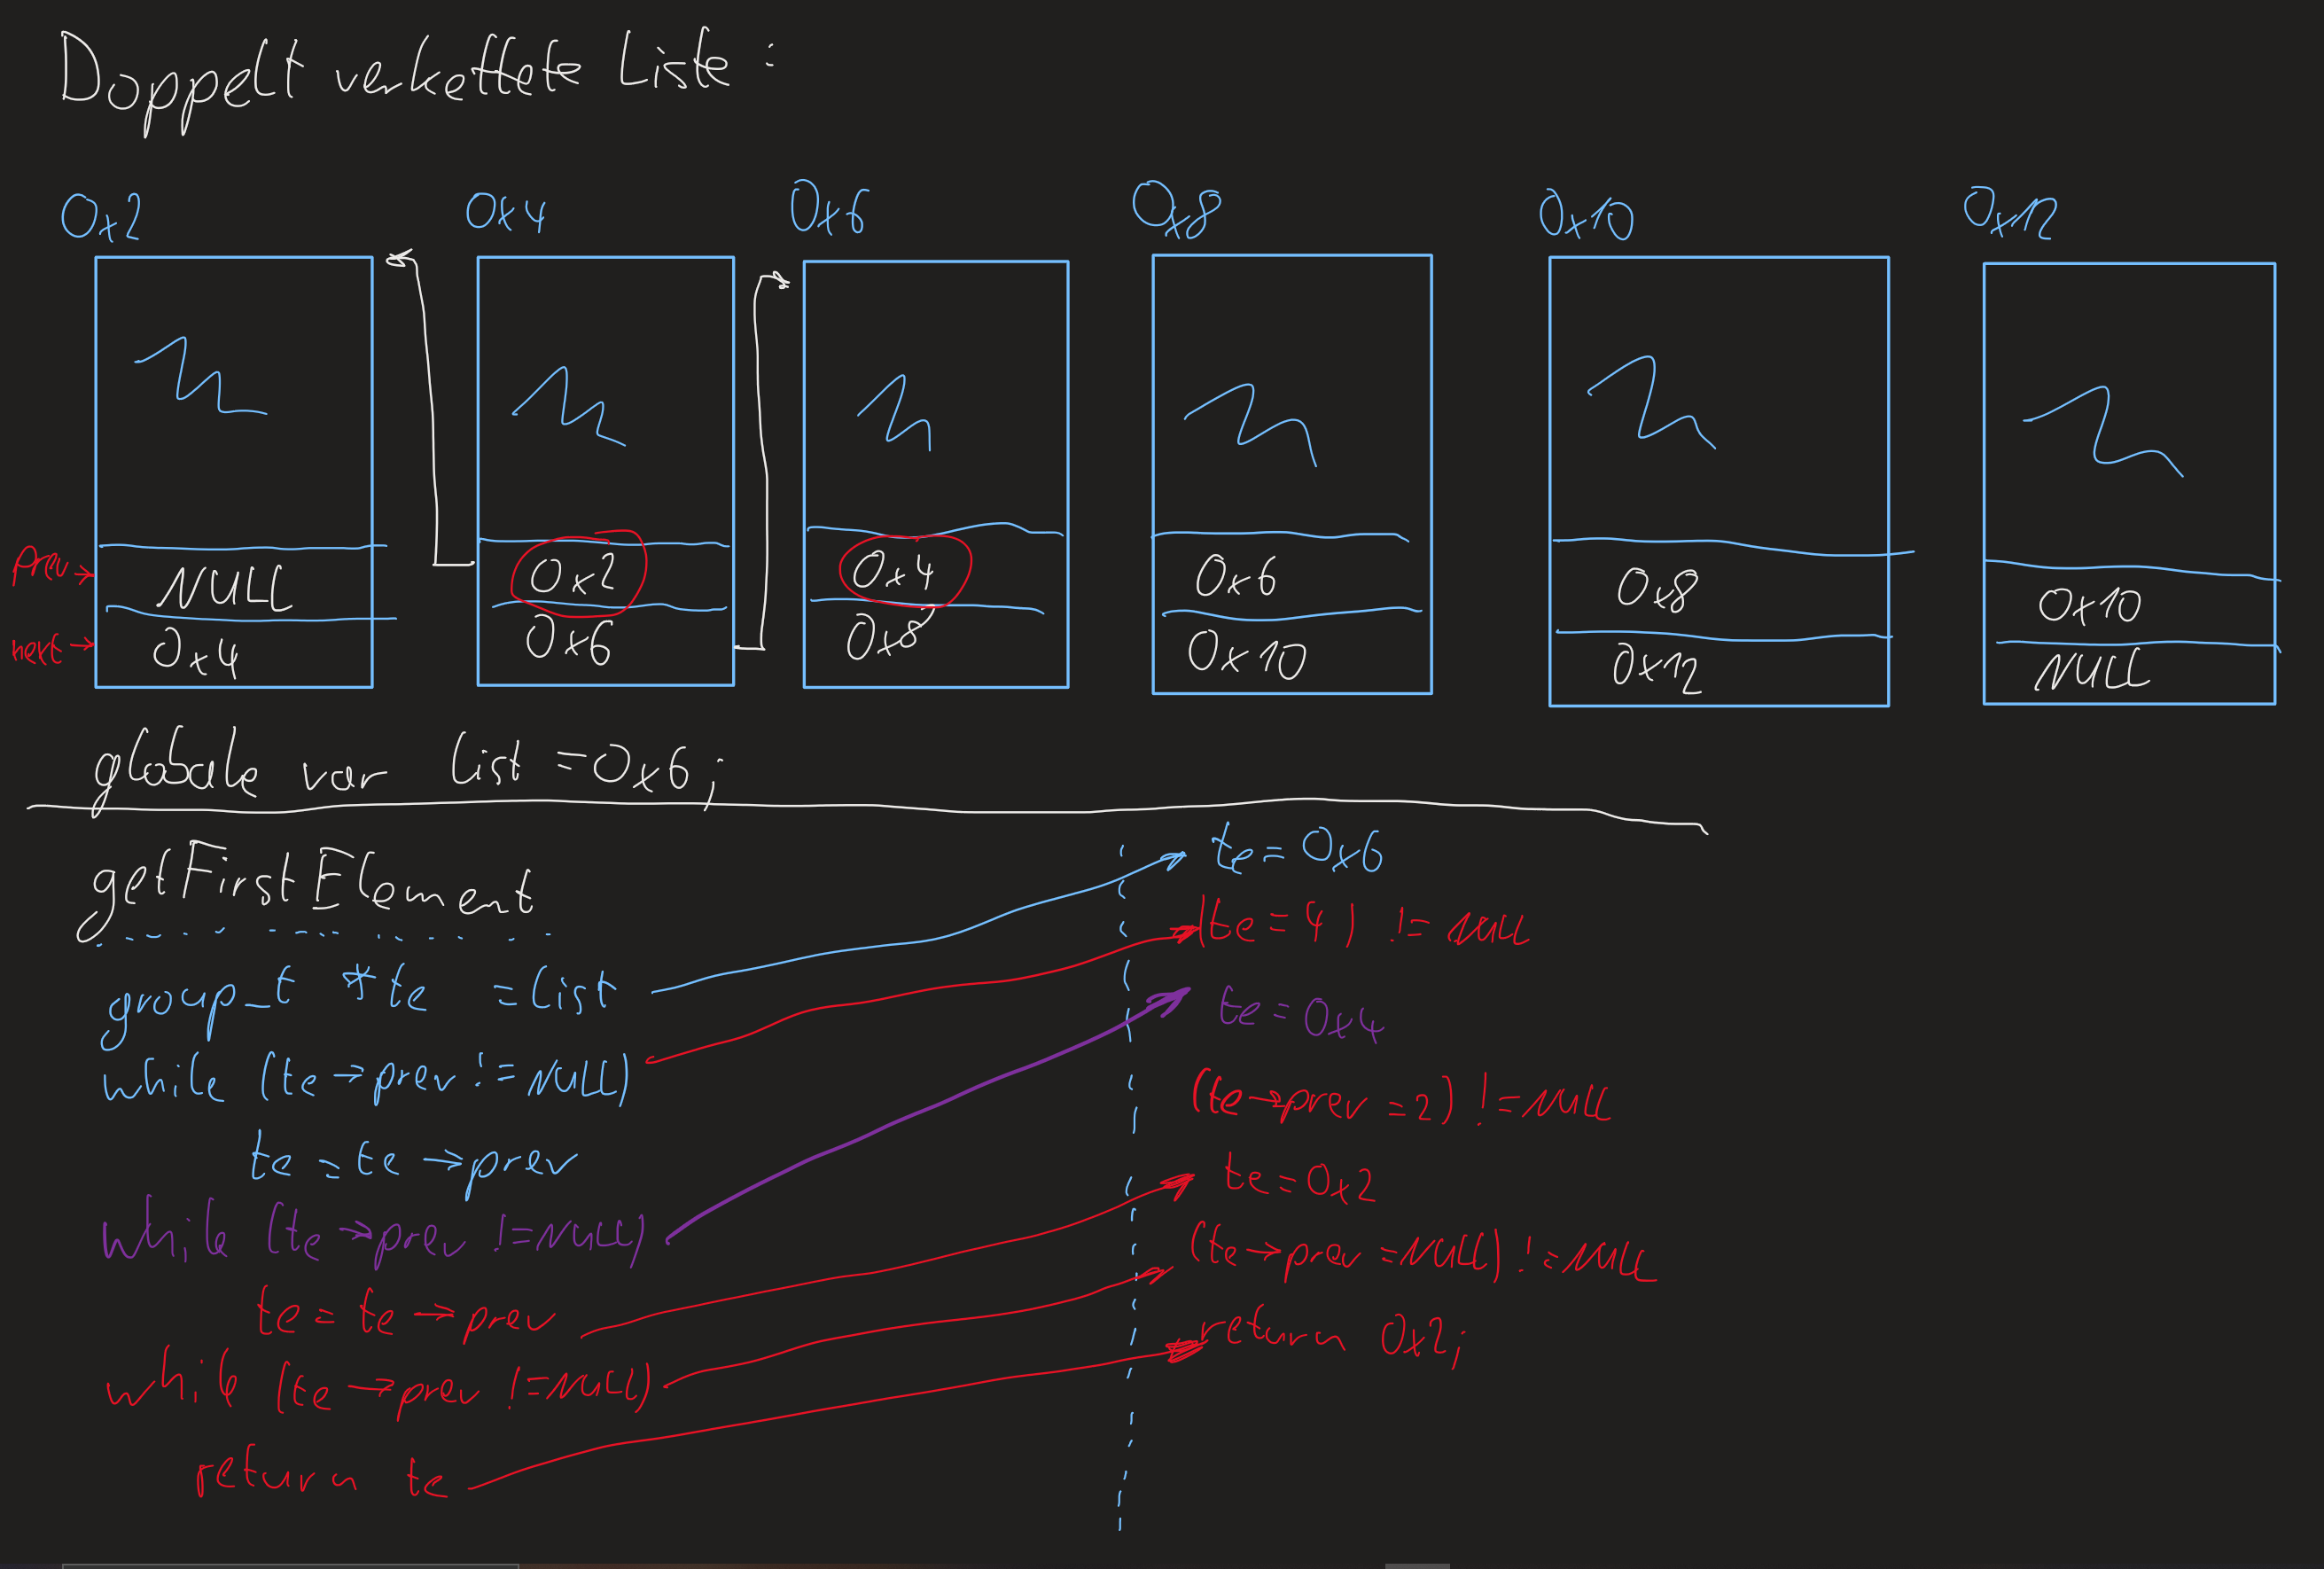 Doppelt verkettete Liste:
0x2 0x4 0x6 0x8 0x10 0x12
prev NULL 0x2 0x4 0x6 0x8 0x10
next 0x4 0x6 0x8 0x10 0x12 NULL
globale var list = 0x6;
getFirstElement
group_t *te = list
while (te->prev != NULL)
te = te->prev
while (te->prev != NULL)
te = te->prev
while (te->prev != NULL)
return te
te = 0x6
(te = 4) != NULL
te = 0x4
(te->prev = 2) != NULL
te = 0x2
(te->prev = NULL) != NULL
return 0x2;